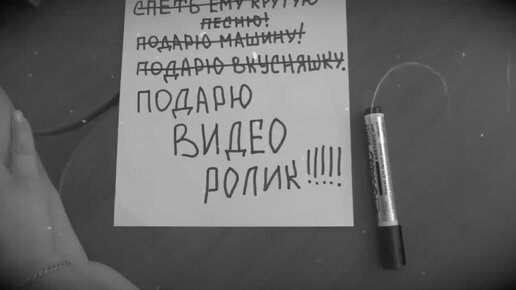 СПЕТЬ ЕМУ КРУТУЮ
ПЕСНЮ!
ПОДАРЮ МАШИНУ!
ПОДАРЮ ВКУСНЯШКУ.
ПОДАРЮ
ВИДЕО
РОЛИК!!!!!